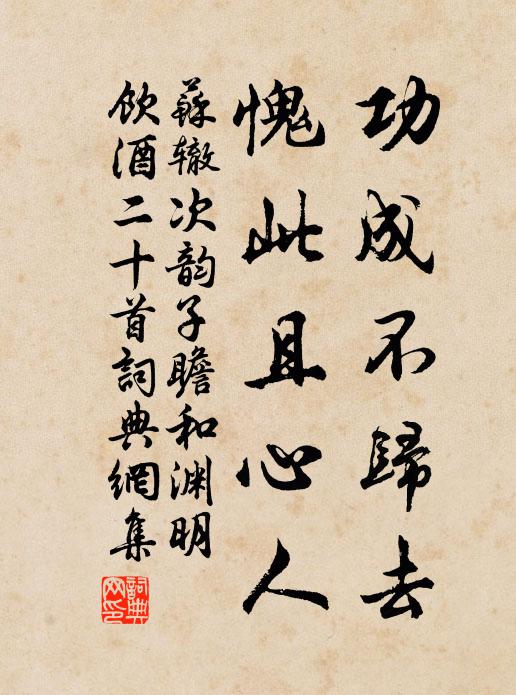 功成不歸去
愧此且心人
蘇辙次韵子瞻和渊明
飲酒二十首詞典網集
詞典網印